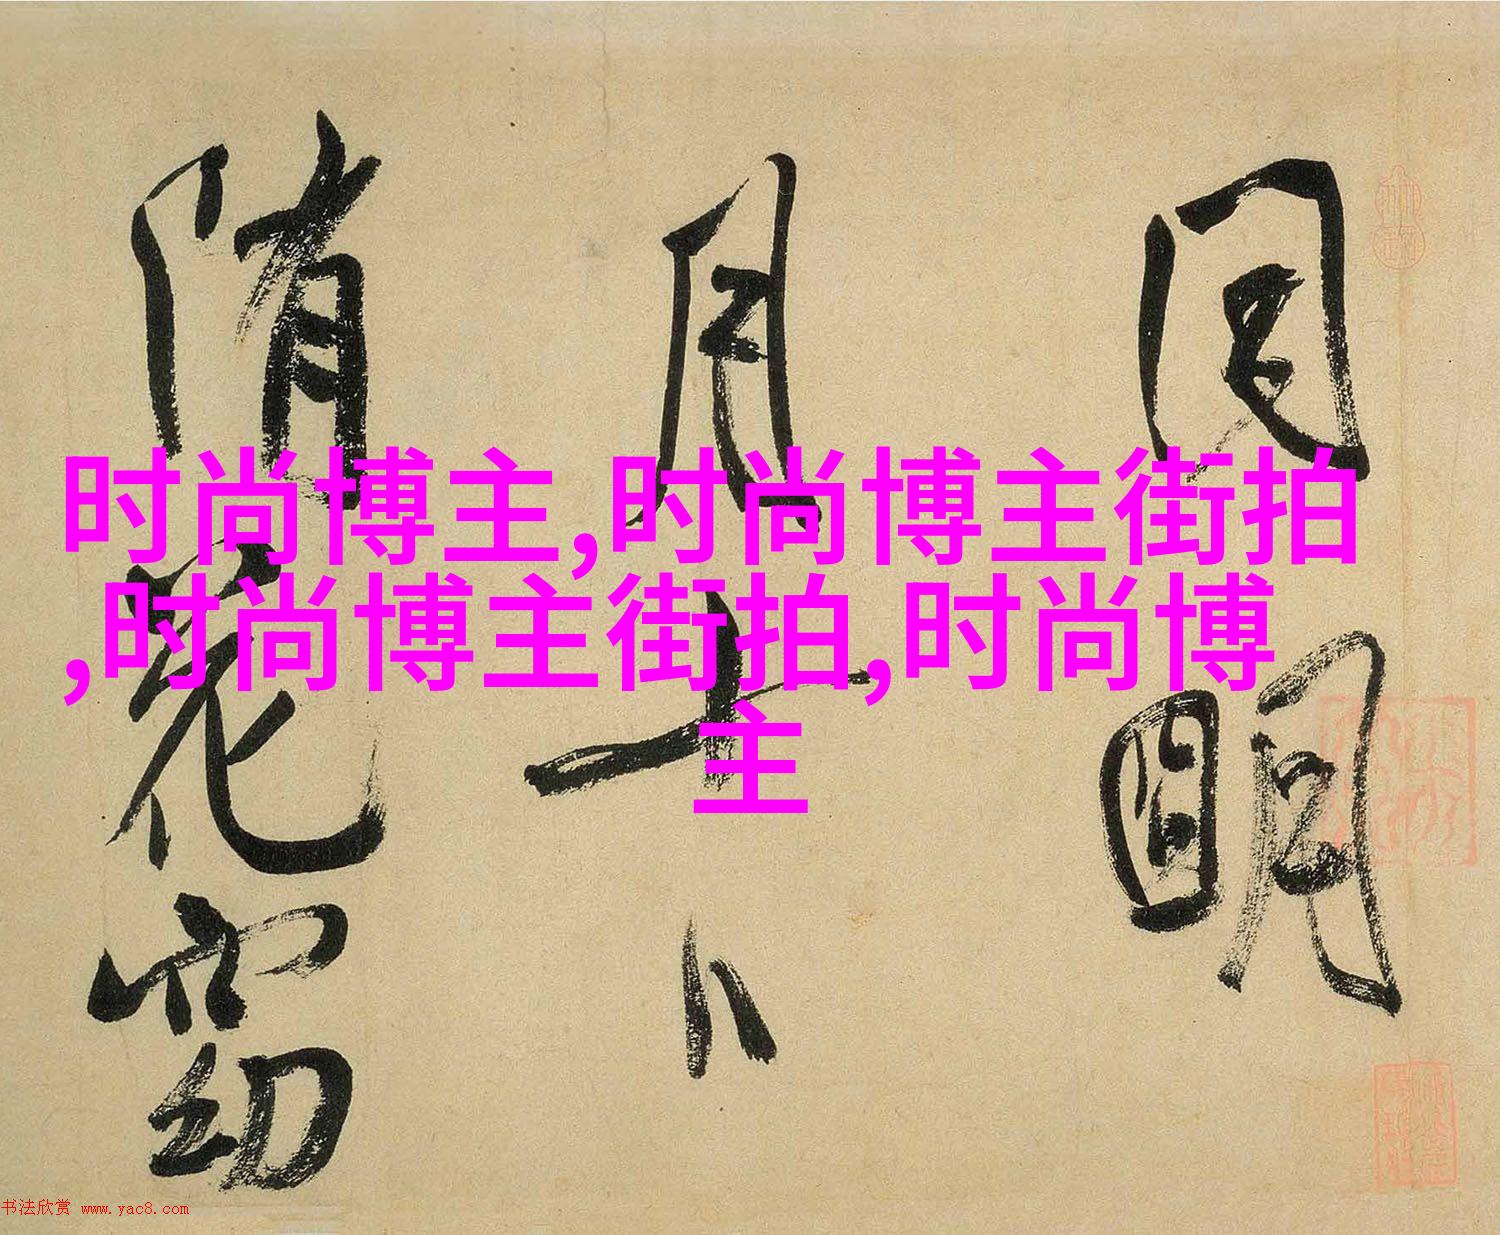 时尚博主,时尚博主街拍
,时尚博主街拍,时尚博
主
同明
月十八
随花窈
书法欣赏 www.yac8.com